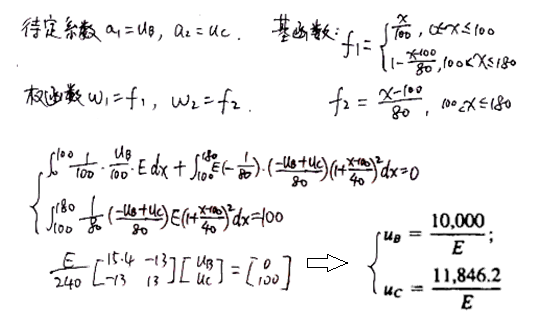 待定系数 a₁=u_B, a₂=u_C. 基函数: f₁= { x/100, 0<x≤100
1-(x-100)/80, 100<x≤180
权函数 w₁=f₁, w₂=f₂. f₂ = (x-100)/80, 100<x≤180
{ ∫₀¹⁰⁰ 1/100 · u_B/100 · E dx + ∫₁₀₀¹⁸⁰ E(-1/80)·((-u_B+u_C)/80)(1+(x-100)/40)² dx=0
∫₁₀₀¹⁸⁰ 1/80 ((-u_B+u_C)/80) E(1+(x-100)/40)² dx=100
E/240 [15.4 -13; -13 13] [u_B; u_C] = [0; 100] ⇨ { u_B = 10,000/E;
u_C = 11,846.2/E